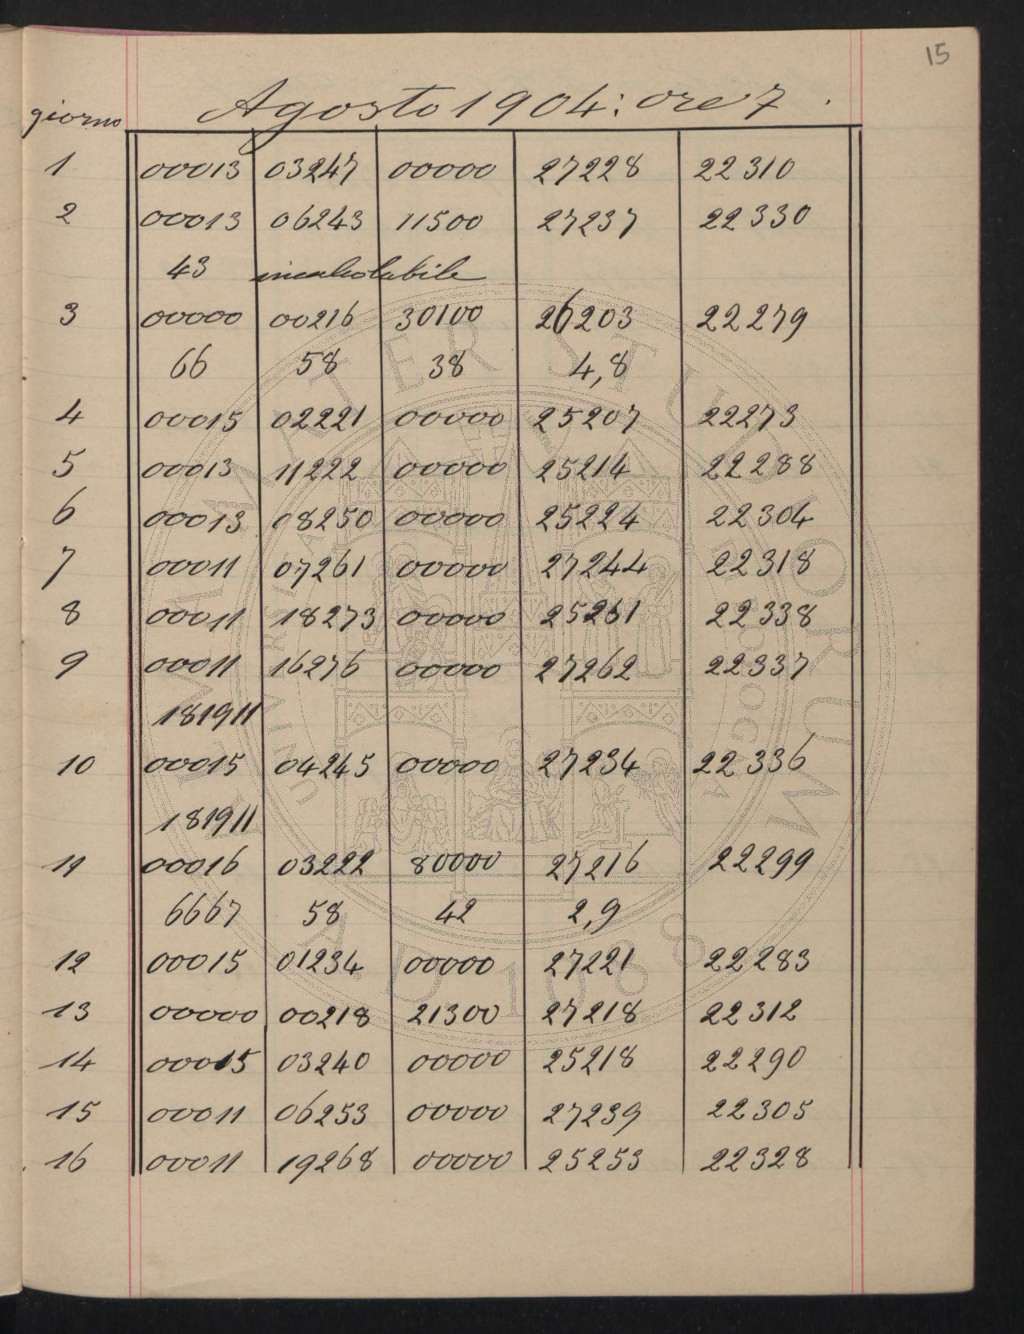 15
Agosto 1904: ore 7.
giorno
1 00013 03247 00000 27228 22310
2 00013 06243 11500 27237 22330
43 incalcolabile
3 00000 00216 30100 26203 22279
66 58 38 4,8
4 00015 02221 00000 25207 22273
5 00013 11222 00000 25214 22288
6 00013 08250 00000 25224 22304
7 00011 07261 00000 27244 22318
8 00011 18273 00000 25261 22338
9 00011 16276 00000 27262 22337
181911
10 00015 04245 00000 27234 22336
181911
11 00016 03222 80000 27216 22299
6667 58 42 2,9
12 00015 01234 00000 27221 22283
13 00000 00218 21300 27218 22312
14 00015 03240 00000 25218 22290
15 00011 06253 00000 27239 22305
16 00011 19268 00000 25253 22328
ALMA MATER STUDIORUM
A.D. 1088